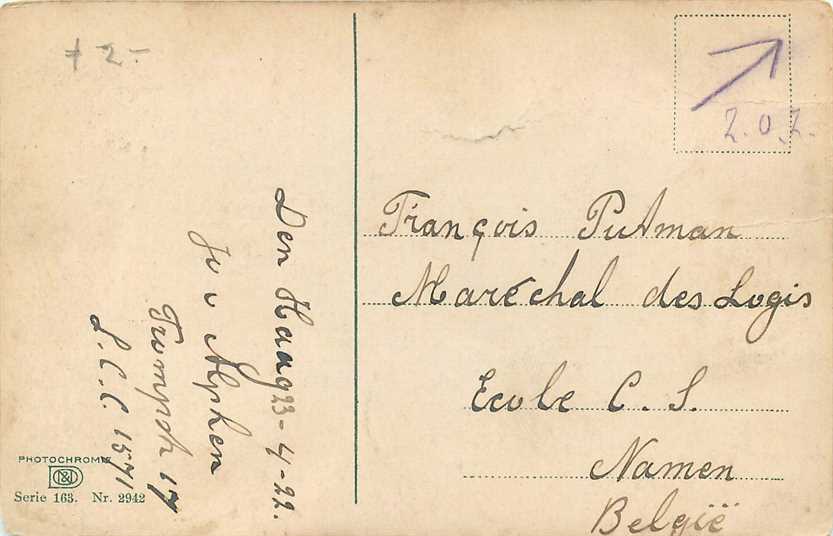 + 2-
Z.O.Z.
François Putman
Maréchal des Logis
Ecole C. S.
Namen
België
Den Haag 23-4-22.
Jo v Alphen
17
L.C.C. 1571
PHOTOCHROMIE
Serie 163. Nr. 2942